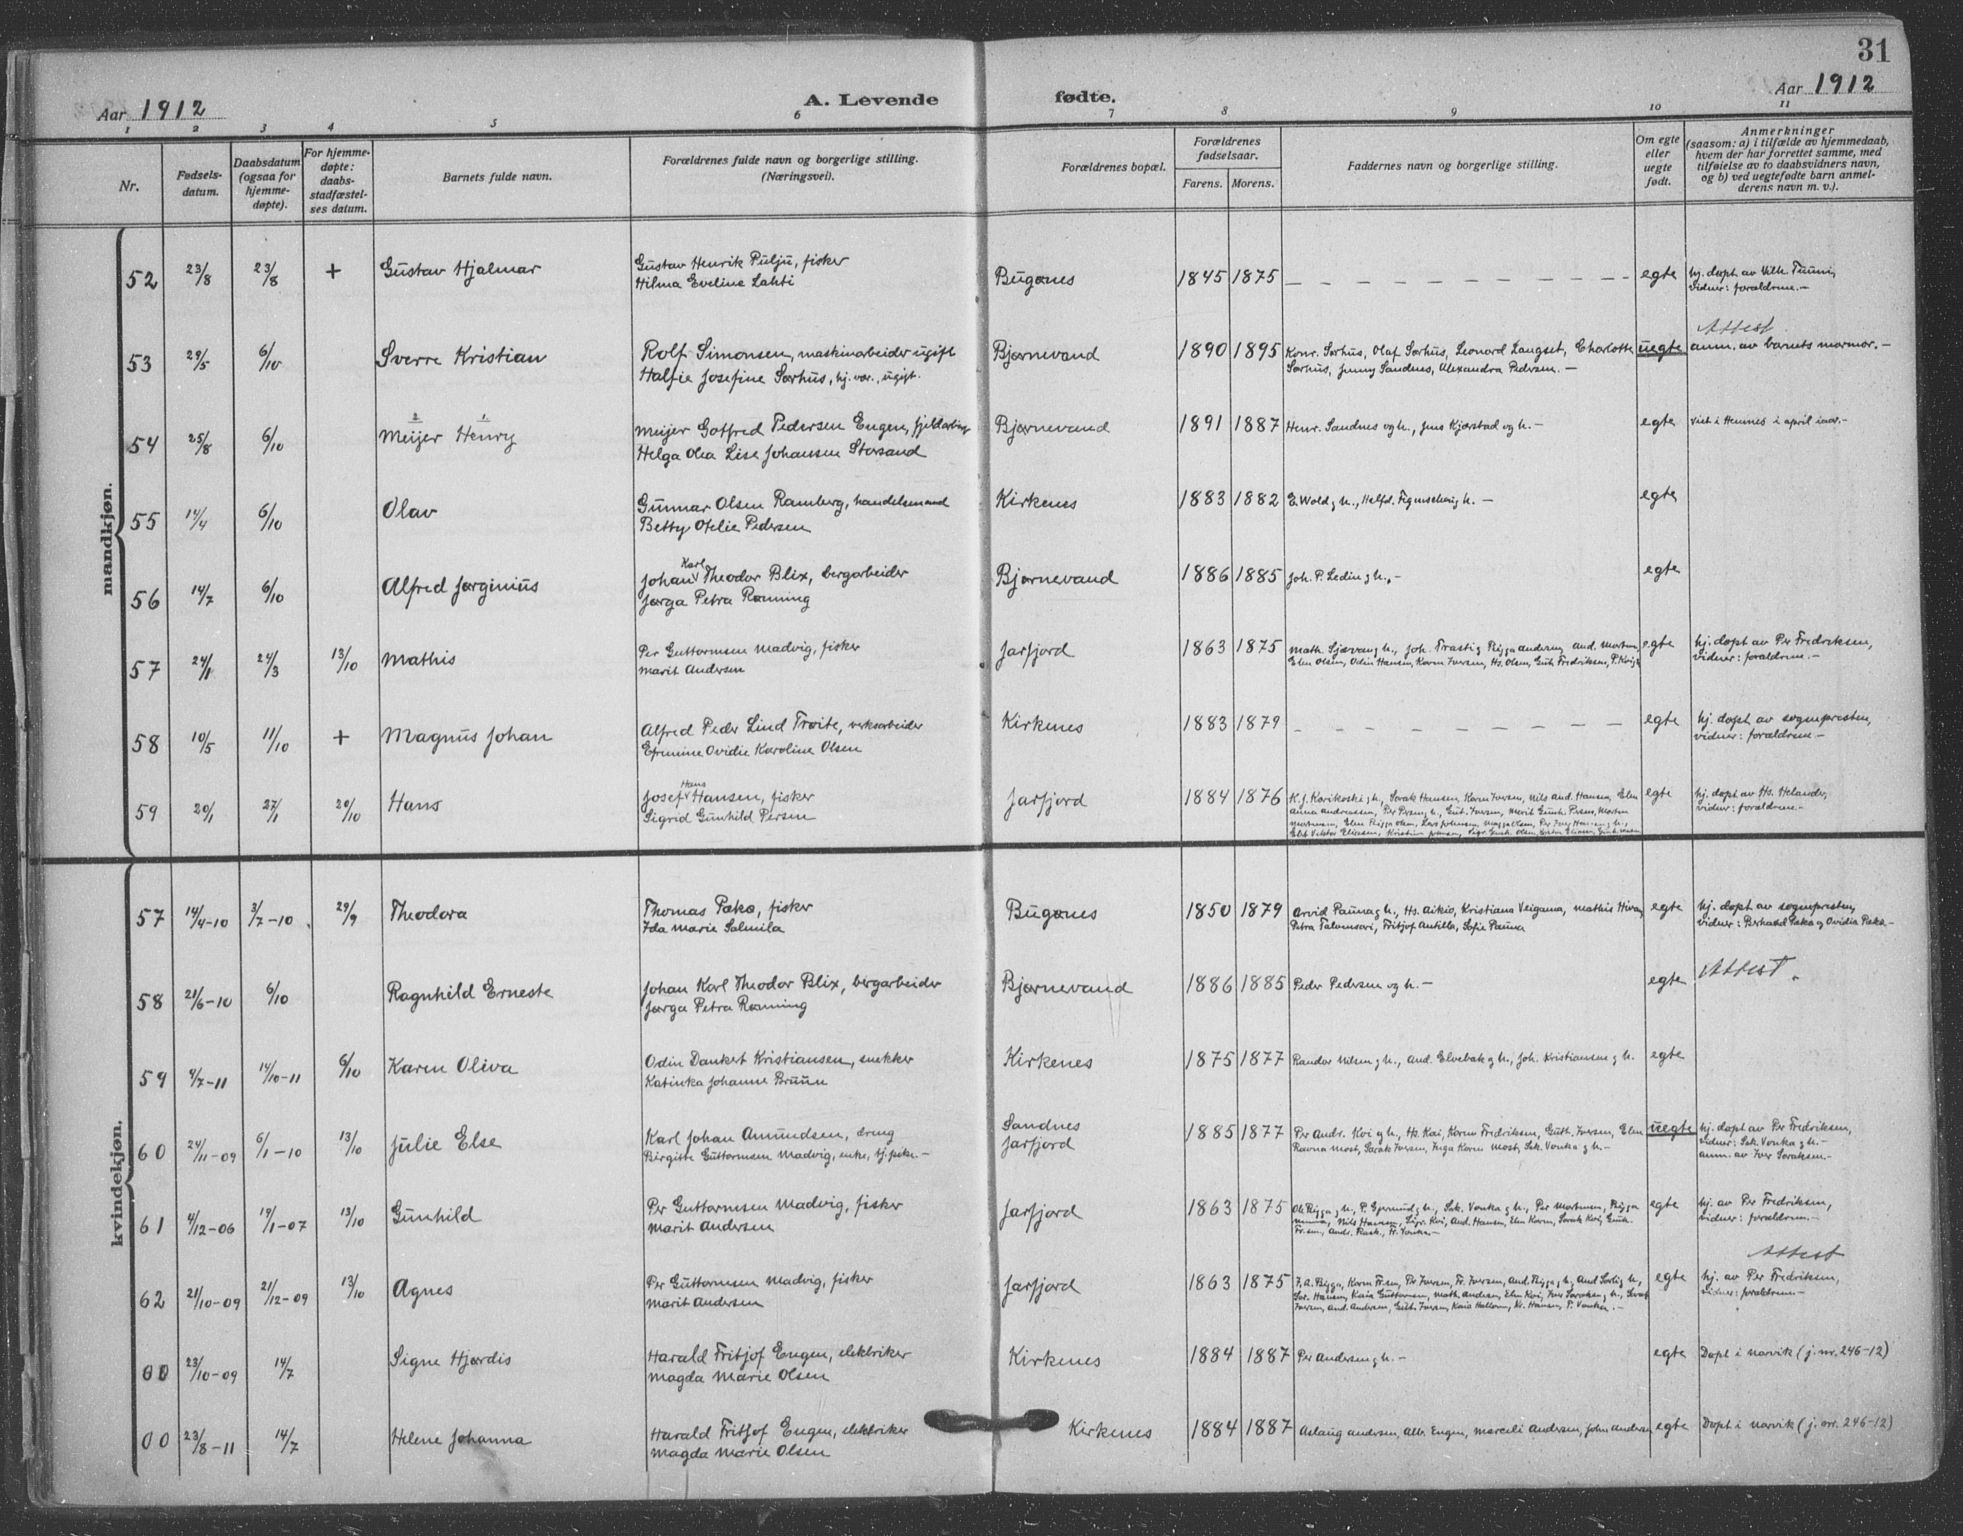 31
Aar 1912 A. Levende fødte. Aar 1912
1 2 3 4 5 6 7 8 9 10 11
Nr. Fødsels-datum. Daabsdatum (ogsaa for hjemme-døpte). For hjemme-døpte: daabs-stadfæstel-ses datum. Barnets fulde navn. Forældrenes fulde navn og borgerlige stilling. (Næringsvei). Forældrenes bopæl. Forældrenes fødselsaar. Farens. Morens. Faddernes navn og borgerlige stilling. Om egte eller uegte født. Anmerkninger (saasom: a) i tilfælde av hjemmedaab, hvem der har forrettet samme, med tilføielse av to daabsvidners navn, og b) ved uegtefødte barn anmel-derens navn m. v.).
mandkjøn.
52 23/8 23/8 + Gustav Hjalmar Gustav Henrik Pulju, fisker Bugønes 1845 1875 — egte hj. døpt av Vilh.
Hilma Eveline Lahti vidner: forældrene.—
Attest
53 29/5 6/10 Sverre Kristian Rolf Simonsen, maskinarbeider ugift Bjørnevand 1890 1895 Konr. Sørhus, Olaf Sørhus, Leonord Langset, Charlotte uegte anm. av barnets mormor.—
Halfie Josefine Sørhus, hj. vær., ugift. Sørhus, Jenny Sandnes, Alexandra Pedersen.—
54 25/8 6/10 Meijer Henry Meijer Gotfred Pedersen Engen, fjeldarb Bjørnevand 1891 1887 Henr. Sandnes og h., Jens Kjærstad og h.— egte viet i Hemnes i april iaar.—
Helga Olea Lise Johansen Storsand
55 14/4 6/10 Olav Gunnar Olsen Ramberg, handelsmand Kirkenes 1883 1882 E. Wold g h., Helfd. h.— egte
Betty Ofelie Pedersen
56 14/7 6/10 Alfred Jørginius Johan Karl Theodor Blix, bergarbeider Bjørnevand 1886 1885 Joh. P. Ledin g h.,— egte
Jørga Petra Rønning
57 24/1 24/3 13/10 Mathis Per Guttormsen Madvig, fisker Jarfjord 1863 1875 Math. g h., Joh. egte hj. døpt av Per Fredriksen,
Marit Andersen Elen Olsen, Odin Hansen, Karen Iversen, Hs. Olsen, Gut. Fredriksen, vidner: forældrene.—
58 10/5 11/10 + Magnus Johan Alfred Peder Lind Trøite, verksarbeider Kirkenes 1883 1879 — egte hj. døpt av sognepresten,
Efremine Ovidie Karoline Olsen vidner: forældrene—
59 20/1 27/1 20/10 Hans Josef Hans Hansen, fisker Jarfjord 1884 1876 K. J. Karikoski g h., Sarak Hansen, Karen Iversen, Nils And. Hansen, Elen egte hj. døpt av Hs. Helander,
Sigrid Gunhild Persen vidner: forældrene—
kvindekjøn.
57 14/4-10 3/7-10 29/9 Theodora Thomas Pakø, fisker Bugønes 1850 1879 Arvid Pauna g h., Hs. Aikio, Kristiana Veigama, Mathis egte hj. døpt av sognepresten,
Ida Marie Salmila Petra Talvensari, Fritjof Antilla, Sofie Pauna vidner:
58 21/6-10 6/10 Ragnhild Erneste Johan Karl Theodor Blix, bergarbeider Bjørnevand 1886 1885 Peder Pedersen og h.— egte Attest.
Jørga Petra Rønning
59 4/7-11 14/10-11 6/10 Karen Oliva Odin Dankert Kristiansen, snekker Kirkenes 1875 1877 Randor Nilsen g h., And. Elvebak g h., Joh. Kristiansen g h. egte
Katinka Johanne Bruun
60 24/11-09 6/1-10 13/10 Julie Else Karl Johan Amundsen, dreng Sandnes 1885 1877 Per Andr. Koi g h., Hs. Koi, Karen Fredriksen, Gutt. Iversen, Elen uegte hj. døpt av Per Fredriksen,
Birgitte Guttormsen Madvig, enke, Jarfjord Ravna Most, Sarak Iversen, Inga Karen Most, Isk. Vonka g h.— vidner: Isk. Vonka g h.—
anm. av Iver Saraksen.—
61 4/12-06 19/1-07 13/10 Gunhild Per Guttormsen Madvig, fisker Jarfjord 1863 1875 egte hj. av Per Fredriksen,
Marit Andersen vidner: forældrene—
Attest
62 21/10-09 21/12-09 13/10 Agnes Per Guttormsen Madvig, fisker Jarfjord 1863 1875 egte hj. av Per Fredriksen,
Marit Andersen vidner: forældrene—
00 23/10-09 14/7 Signe Hjørdis Harald Fritjof Engen, elektriker Kirkenes 1884 1887 Per Andersen g h.— egte Døpt i Narvik (j. nr. 246-12)
Magda Marie Olsen
00 23/8-11 14/7 Helene Johanna Harald Fritjof Engen, elektriker Kirkenes 1884 1887 Aslaug Andersen, Alb. Engen, Marceli Andersen, John Andersen egte Døpt i Narvik (j. nr. 246-12)
Magda Marie Olsen